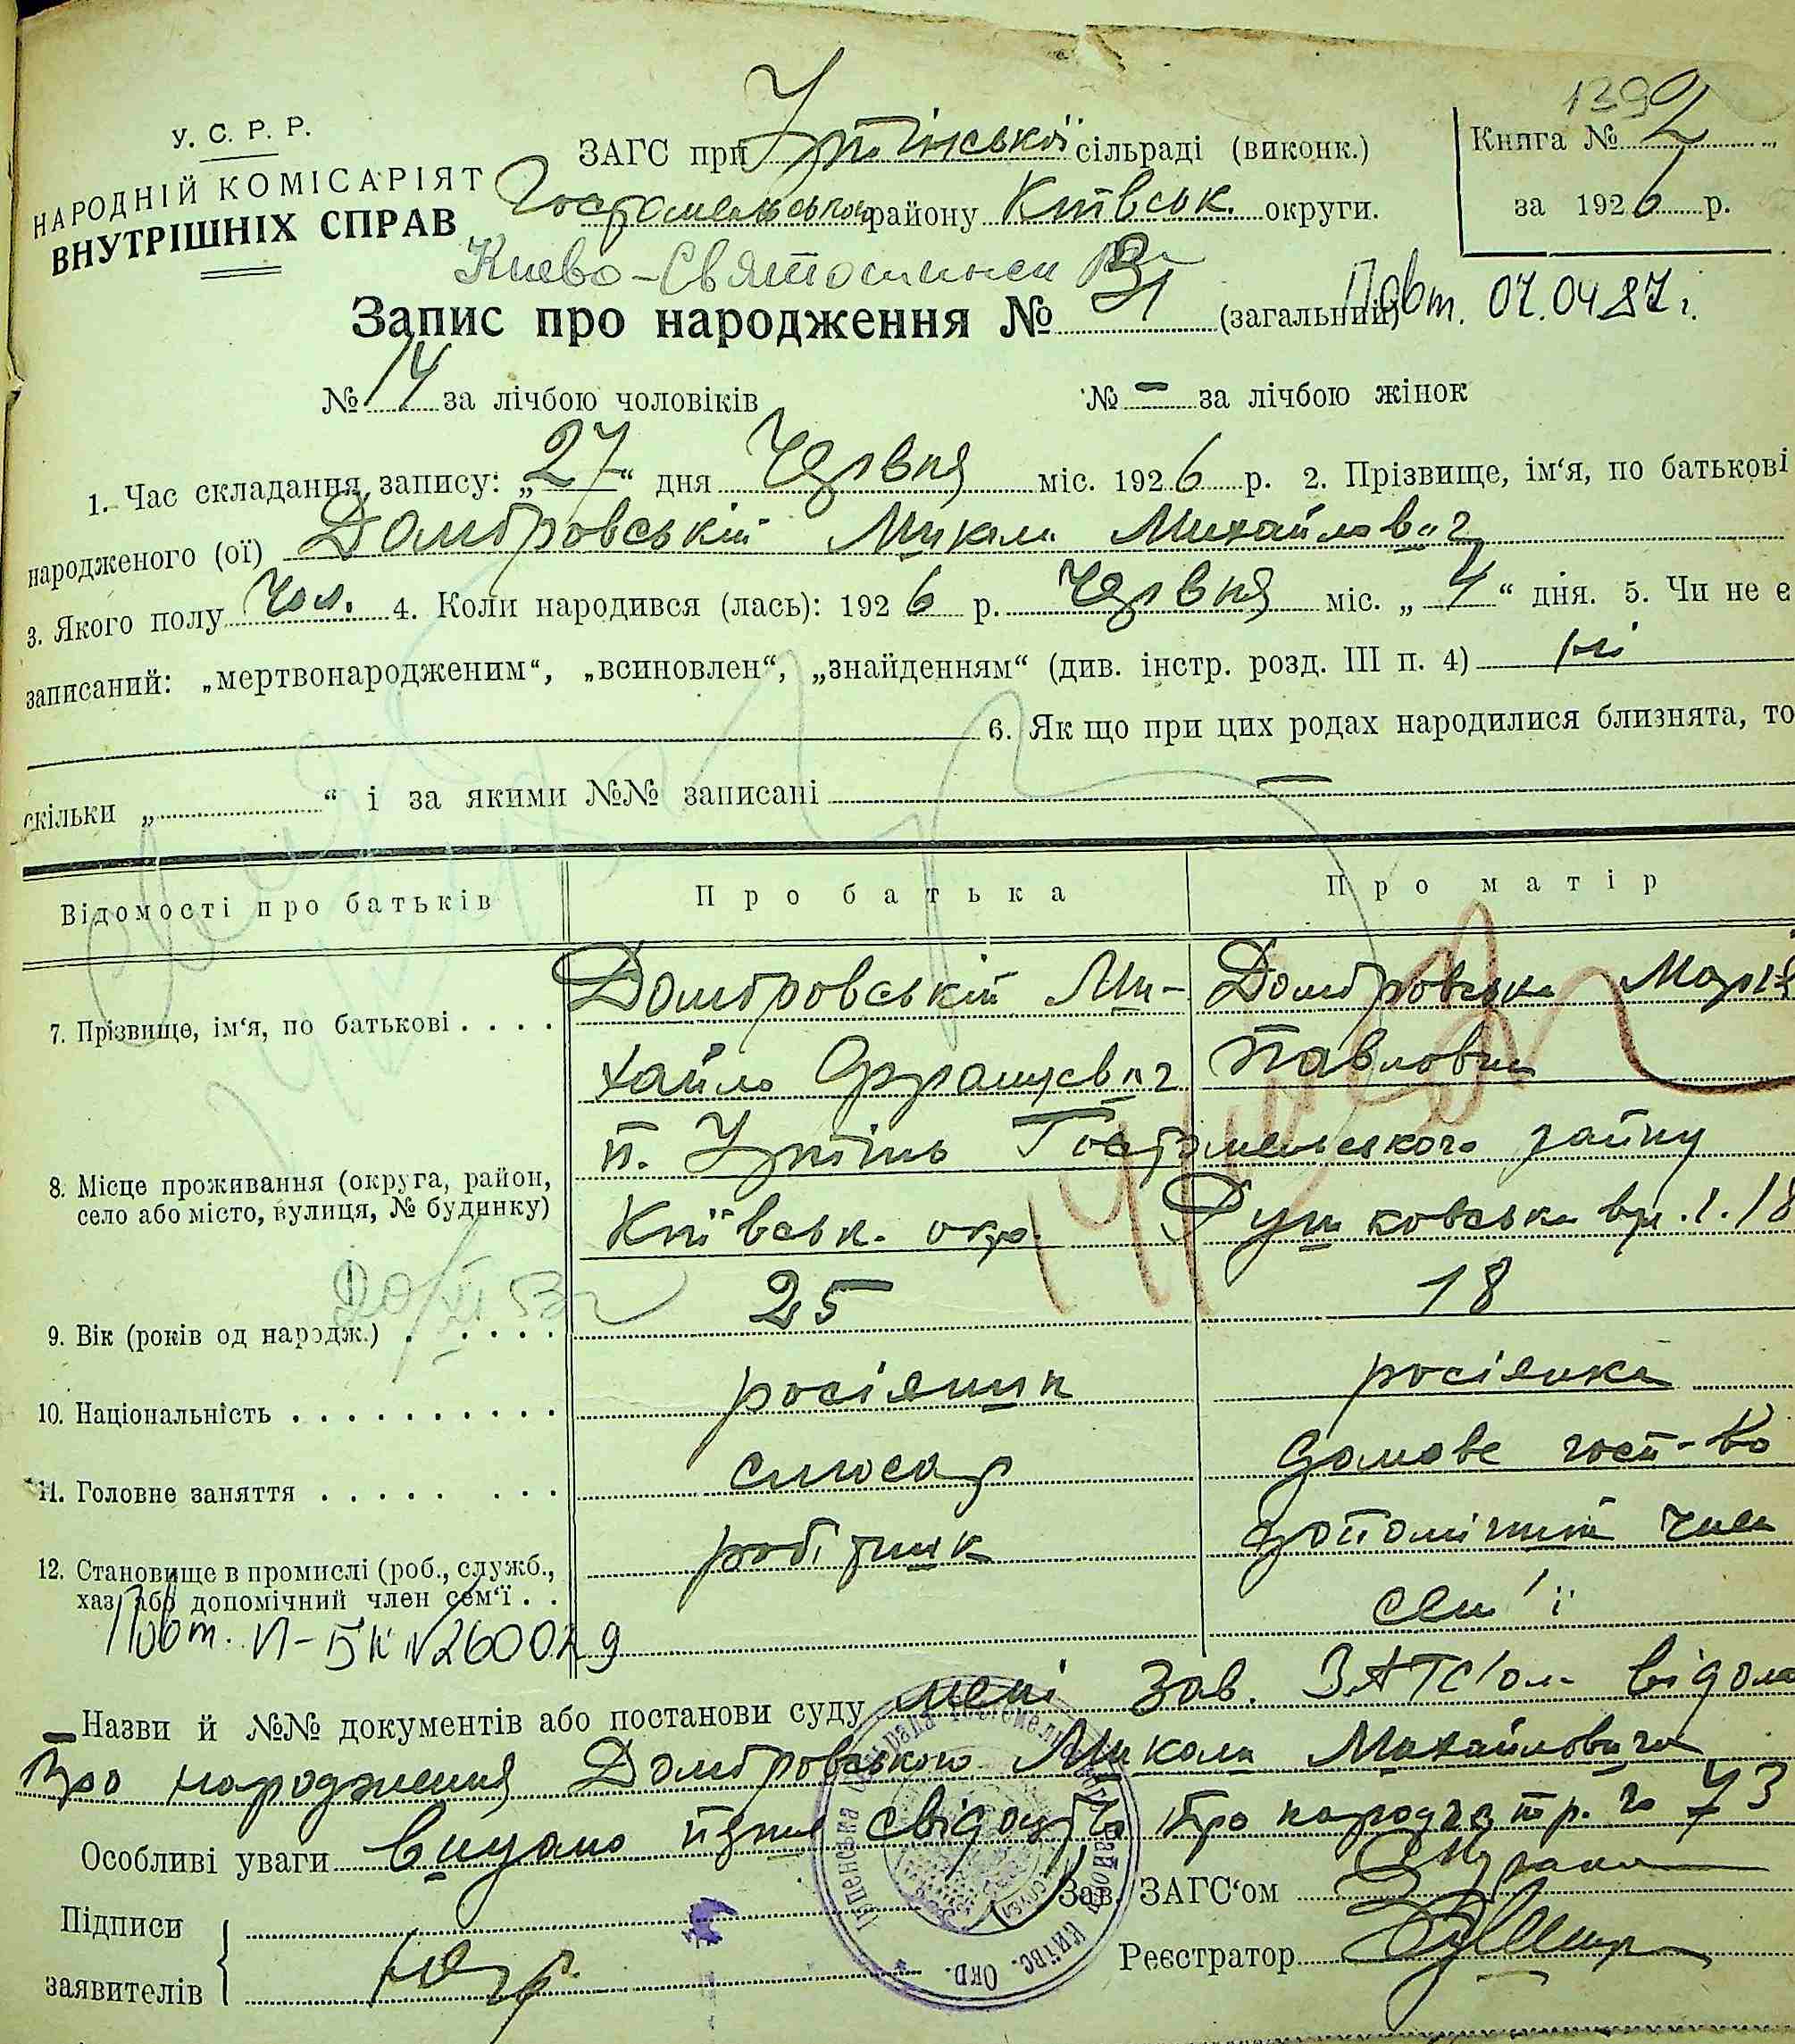 1392
У. С. Р. Р.
НАРОДНІЙ КОМІСАРІЯТ
ВНУТРІШНІХ СПРАВ
ЗАГС при Ірпінській сільраді (виконк.)
Гостомельського району Київськ. округи.
Книга № 2
за 1926 р.
Киево-Святошинск
Запис про народження № 31 (загальний) Повт. 07.04.87 г.
№ 14 за лічбою чоловіків № — за лічбою жінок
1. Час складання запису: „27“ дня Червня міс. 1926 р. 2. Прізвище, ім‘я, по батькові
народженого (ої) Домбровській Микола Михайлович
3. Якого полу Чол. 4. Коли народився (лась): 1926 р. Червня міс. „4“ дня. 5. Чи не є
записаний: „мертвонародженим“, „всиновлен“, „знайденням“ (див. інстр. розд. III п. 4) ні
6. Як що при цих родах народилися близнята, то
скільки „ “ і за якими №№ записані —
Відомості про батьків Про батька Про матір
7. Прізвище, ім‘я, по батькові . . . . Домбровській Ми- Домбровська Марія
хайло Францевич Павловна
8. Місце проживання (округа, район, село або місто, вулиця, № будинку) п. Ірпінь Гостомельського району
Київськ. окр. вул. 18
9. Вік (років од народж.) . . . . . 25 18
10. Національність . . . . . . . . . . росіянин росіянка
11. Головне заняття . . . . . . . . слюсар домове госп-во
12. Становище в промислі (роб., служб., хаз. або допомічний член сем‘ї . . робітник допомічний член
сем'ї
Повт. II-БК №260029
Назви й №№ документів або постанови суду мені Зав. ЗАГС'ом відомо
про народження Домбровського Миколи Михайловича
Особливі уваги видано свідоцтво про народж. 73
Підписи
заявителів
Зав. ЗАГС‘ом
Реєстратор